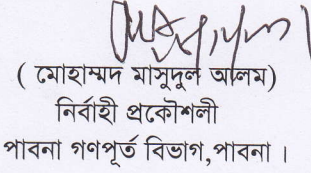 ( মোহাম্মদ মাসুদুল আলম)
নির্বাহী প্রকৌশলী
পাবনা গণপূর্ত বিভাগ,পাবনা ।